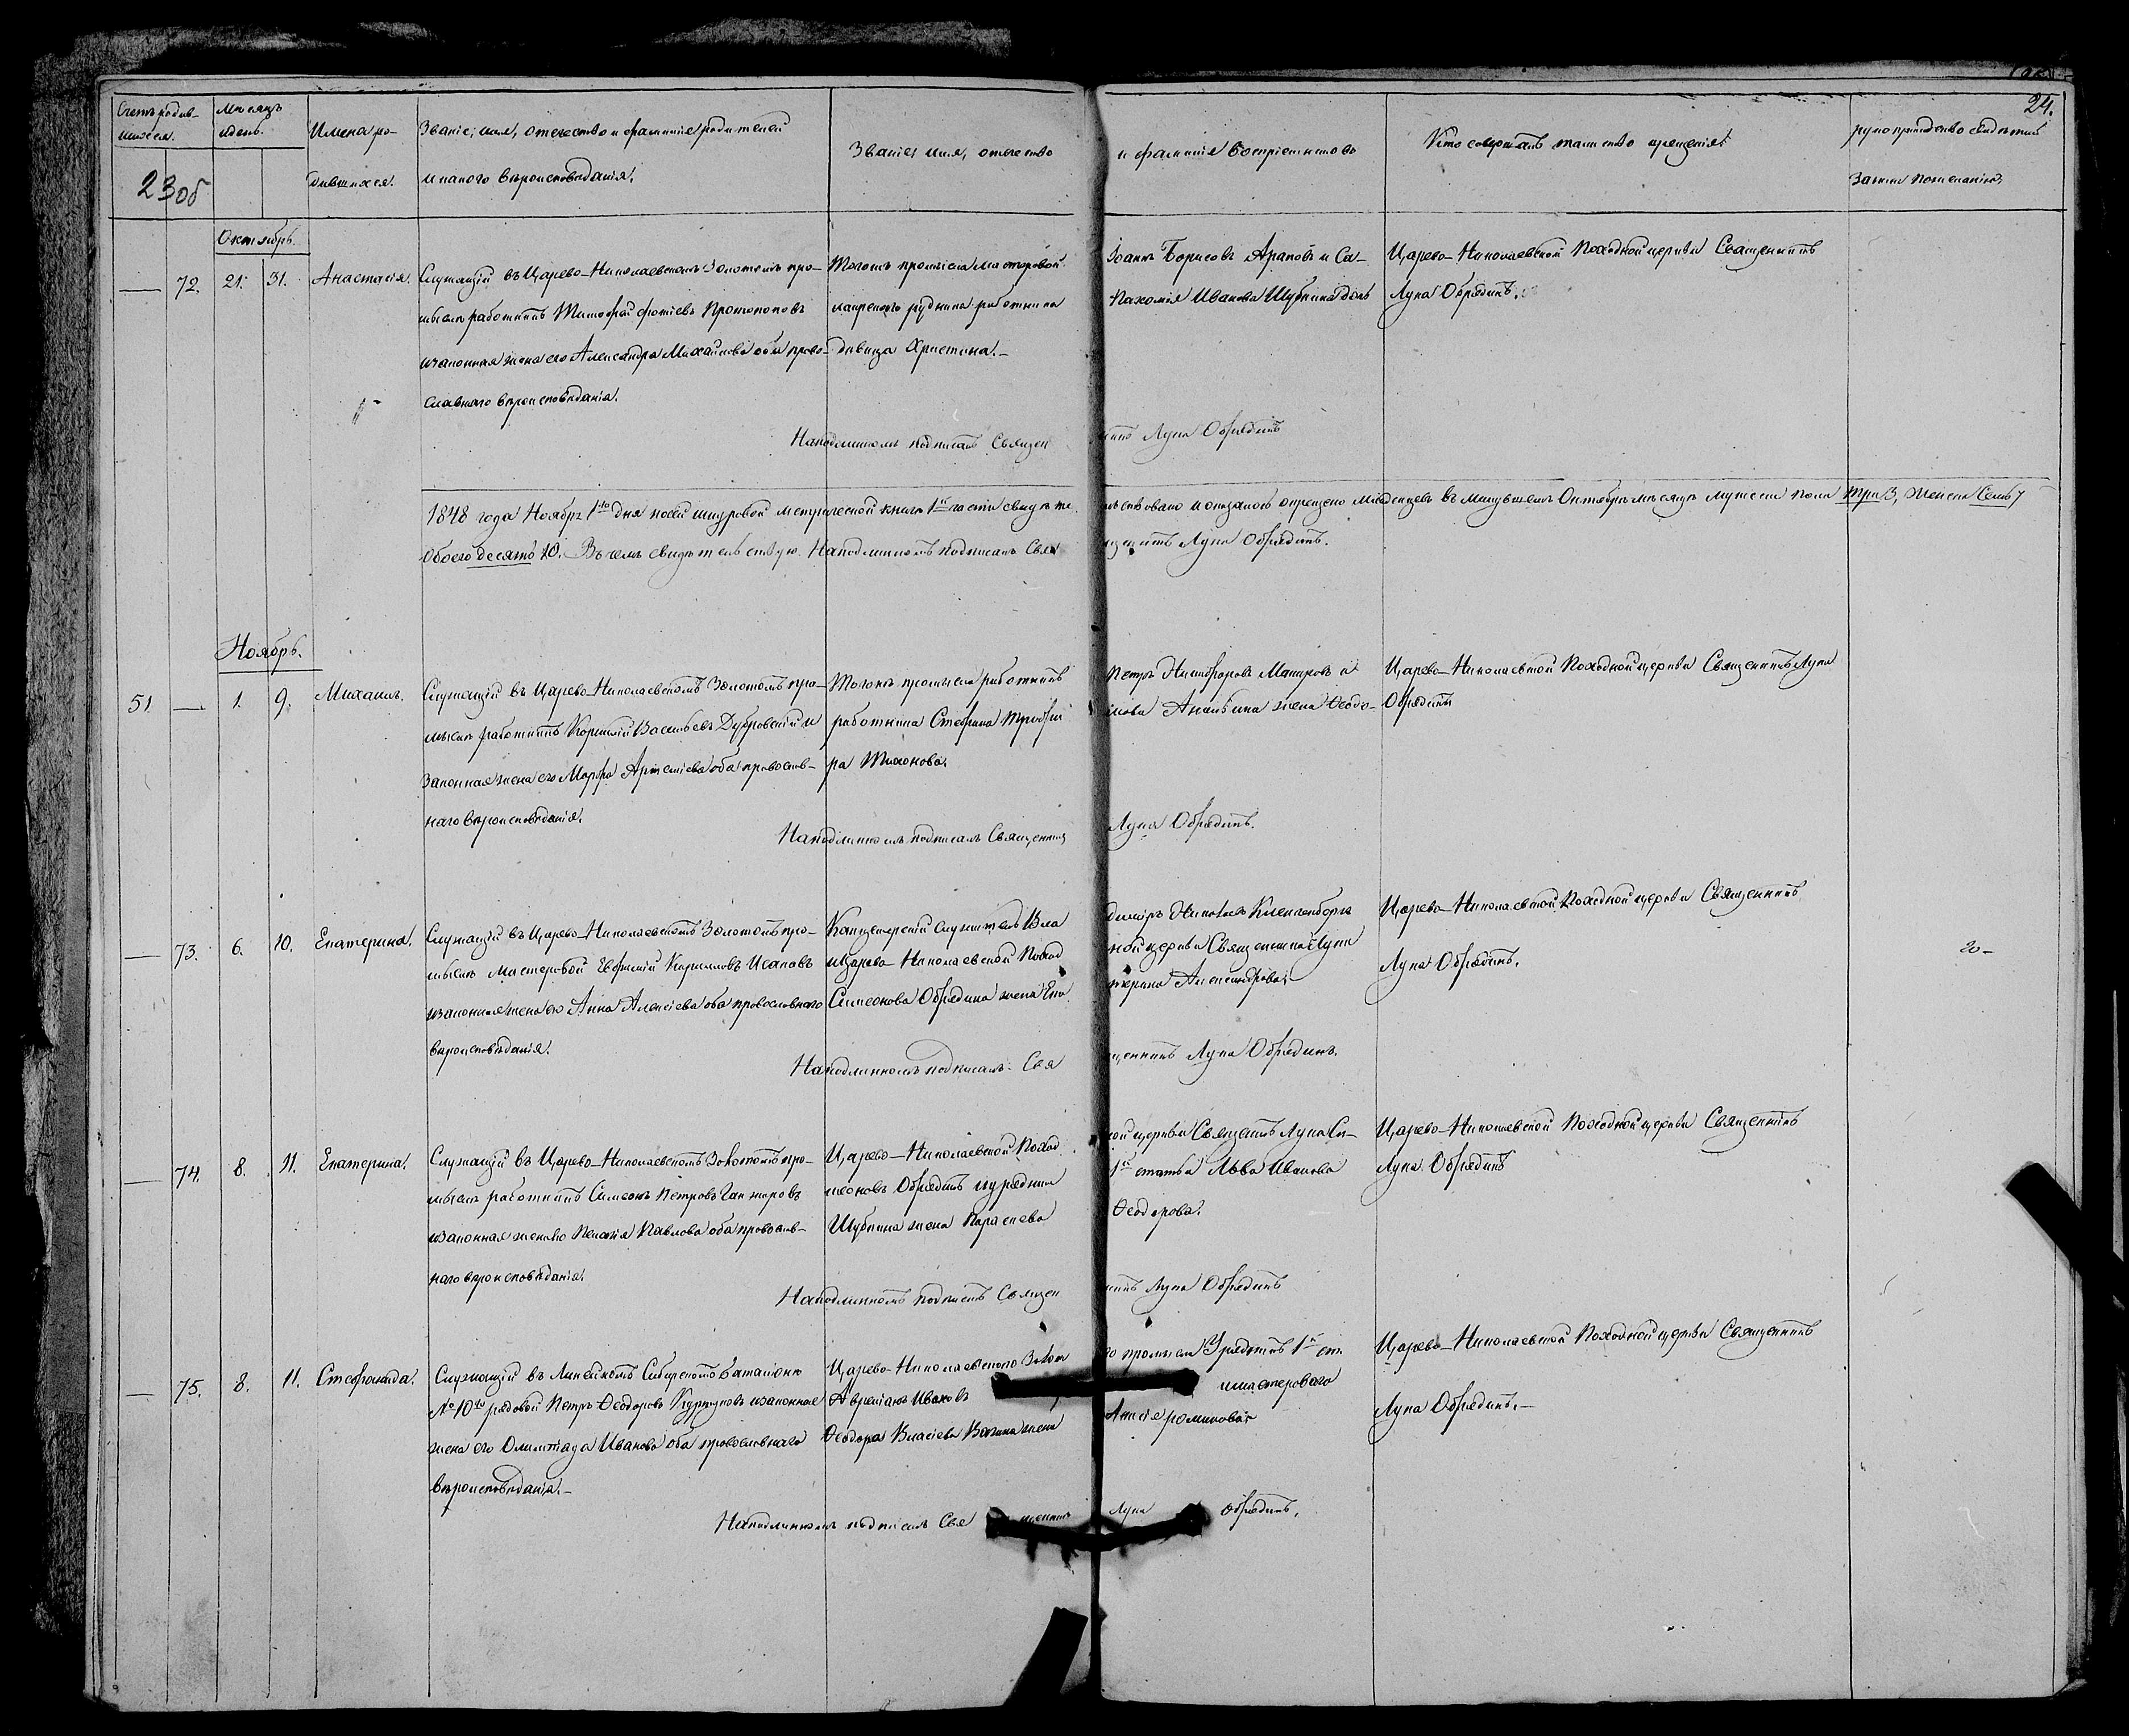 24.
Счетъ родив-
шихся.
Мѣсяцъ
и день.
Имена ро-
дившихся.
Званіе, имя, отечество и фамилія родителей
и какого вѣроисповѣданія.
Званіе, имя, отечество и фамилія воспріемниковъ
Кто совершалъ таинство крещенія.
рукоприкладство свидѣтелей
записи по желанію.
23 об
Октябрь.
72. 21. 31. Анастасія.
Служащій въ Царево-Николаевскомъ Золотомъ про-
мыслѣ работникъ Тимофей Фотіевъ Протопоповъ
и законная жена его Александра Михайлова оба право-
славнаго вѣроисповѣданія.
Тогожъ промысла мастеровой Іоаннъ Борисовъ Араповъ и Са-
лаирскаго рудника работника Пахомія Иванова Шубкина дочь
дѣвица Христина.
Царево-Николаевской Походной церкви Священникъ
Лука Обрядинъ.
На подлинномъ подписалъ Священникъ Лука Обрядинъ
1848 года Ноября 1го дня по сей шнуровой метрической книги 1й части свидѣтельствовано и оказалось окрещено младенцевъ въ минувшемъ Октябрѣ мѣсяцѣ мужеска пола три 3, женска семь 7
обоего десять 10. Въ чемъ свидѣтельствую. На подлинномъ подписалъ Священникъ Лука Обрядинъ.
Ноябрь.
51. 1. 9. Михаилъ.
Служащій въ Царево-Николаевскомъ Золотомъ про-
мыслѣ работникъ Корнилій Васильевъ Дубровскій и
законная жена его Марфа Артеміева оба православ-
наго вѣроисповѣданія.
Тогожъ промысла работникъ Петръ Никифоровъ и
работника Стефана жена Ѳеодо-
ра Тихонова.
Царево-Николаевской Походной церкви Священникъ Лука
Обрядинъ
На подлинномъ подписалъ Священникъ Лука Обрядинъ.
73. 6. 10. Екатерина.
Служащій въ Царево-Николаевскомъ Золотомъ про-
мыслѣ мастеровой Евфимій Кирилловъ Исаковъ
и законная жена его Анна Алексіева оба православнаго
вѣроисповѣданія.
Канцелярскій служитель Владиміръ
и Царево-Николаевской Походной церкви Священника Луки
Симеонова Обрядина жена Екатерина Александрова.
Царево-Николаевской Походной церкви Священникъ
Лука Обрядинъ.
На подлинномъ подписалъ Священникъ Лука Обрядинъ.
74. 8. 11. Екатерина.
Служащій въ Царево-Николаевскомъ Золотомъ про-
мыслѣ работникъ Симеонъ Петровъ
и законная жена его Пелагія Павлова оба православ-
наго вѣроисповѣданія.
Царево-Николаевской Походной церкви Священникъ Лука Си-
меоновъ Обрядинъ и урядника 1й статьи Льва Иванова
Шубкина жена Параскева Ѳеодорова.
Царево-Николаевской Походной церкви Священникъ
Лука Обрядинъ
На подлинномъ подписалъ Священникъ Лука Обрядинъ
75. 8. 11. Стефанида.
Служащій въ Линейномъ Сибирскомъ баталіонѣ
№ 10го рядовой Петръ Ѳеодоровъ и законная
жена его Олимпіада Иванова оба православнаго
вѣроисповѣданія.
Царево-Николаевскаго Золотого промысла Урядникъ 1й ст.
Авреліанъ Ивановъ и мастероваго
Ѳеодора Власіева жена
Царево-Николаевской Походной церкви Священникъ
Лука Обрядинъ.
На подлинномъ подписалъ Священникъ Лука Обрядинъ.